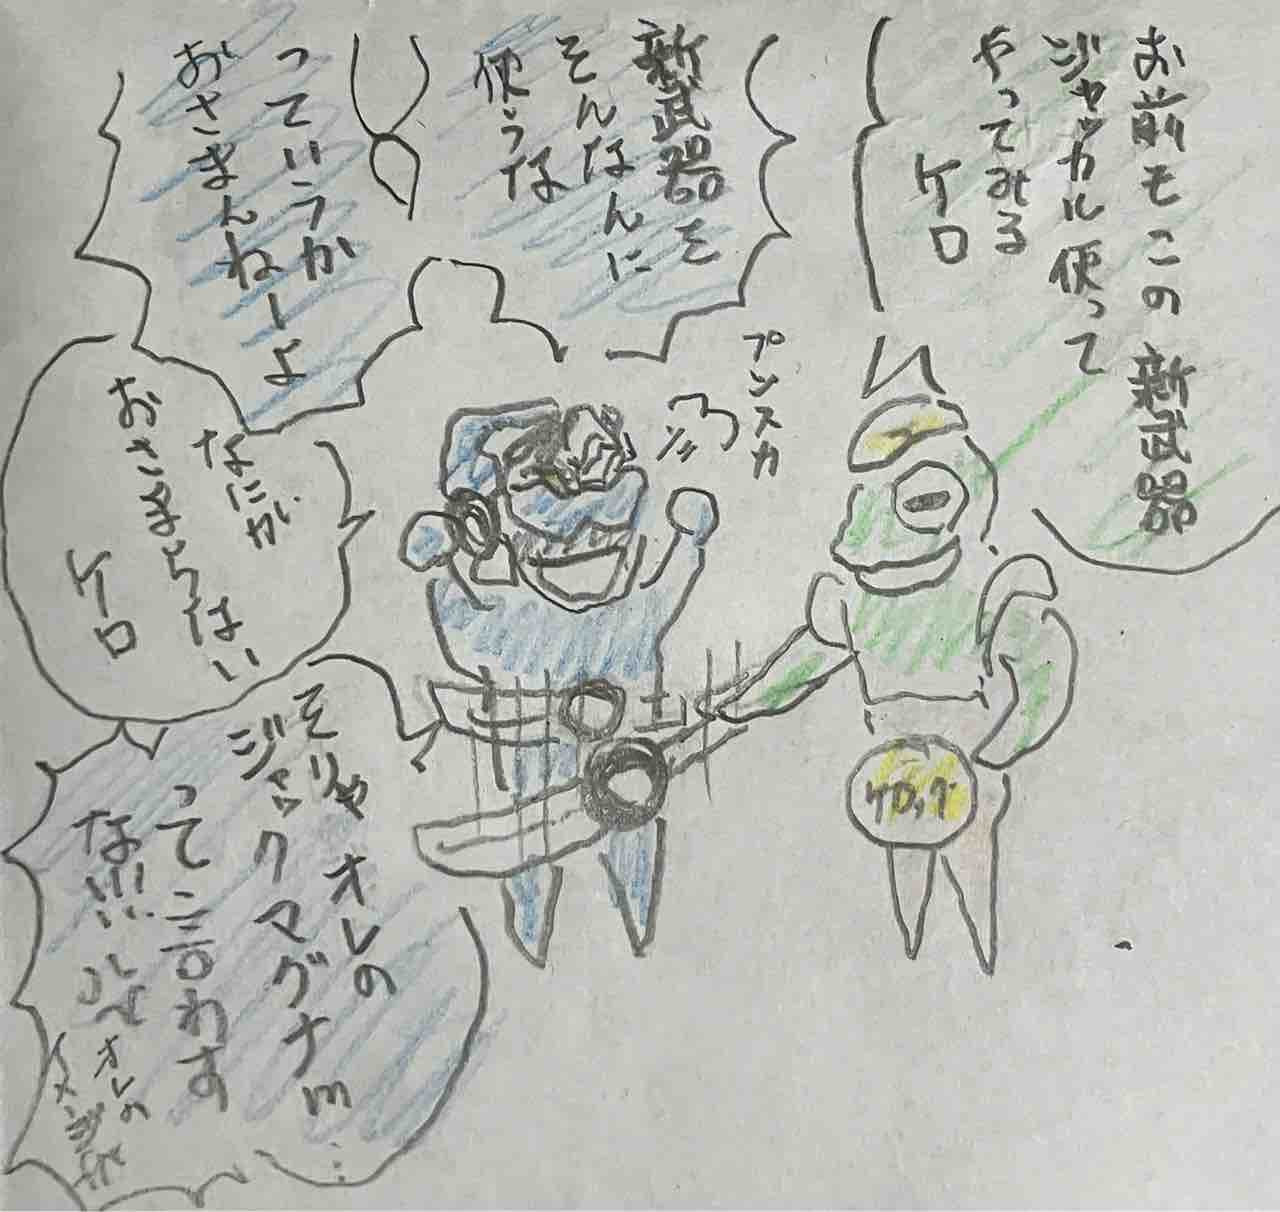 お前もこの新武器
ジャッカル使って
やってみる
ケロ
新武器を
そんなんに
使うな
っていうか
おさまんねーよ
プンスカ
なにが
おさまらない
ケロ
そりゃオレの
ジャックマグナm…
って言わす
な!!!
オレの
ケロッグ